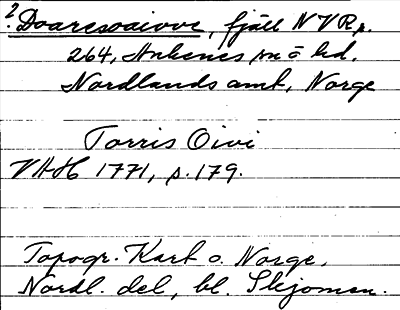 ? Doaresoaivve, fjäll NVR p.
264, Ankenes snö hd.
Nordlands amt, Norge
Torris Oivi
VHH 1771, s. 179.
Topogr. Kart o. Norge,
Nordl. del, bl. Skjomen.